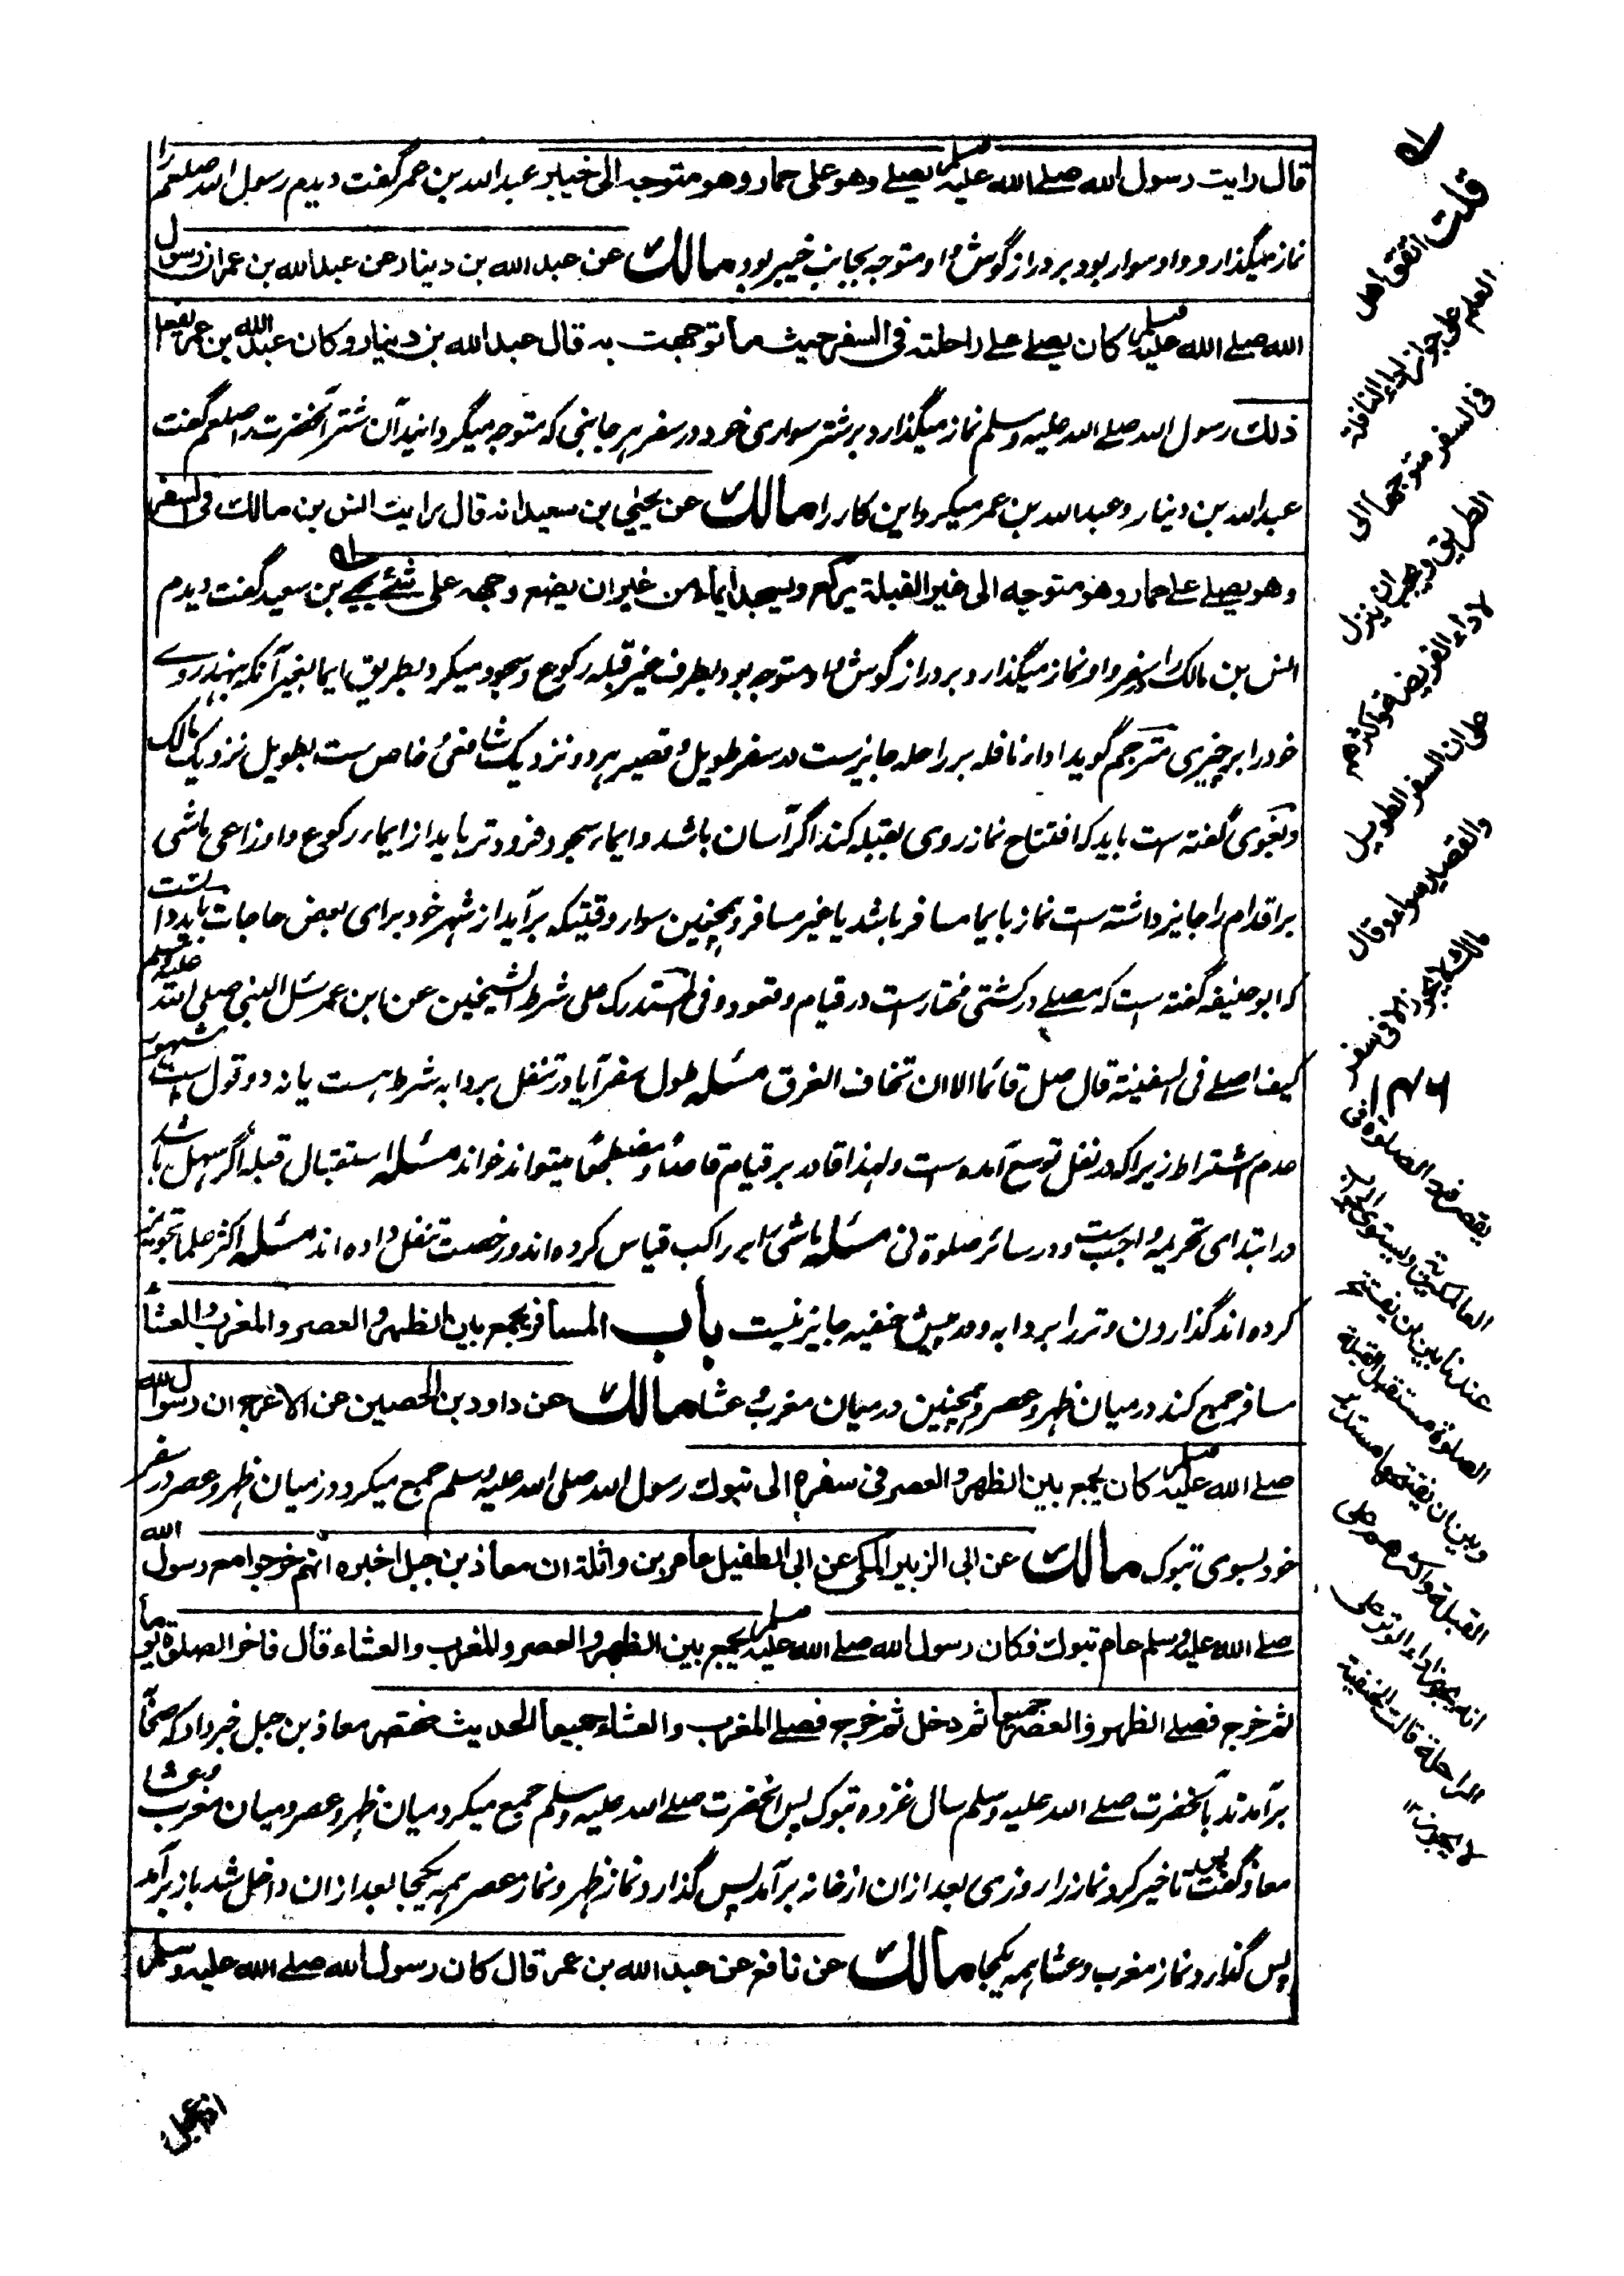 قال رایت رسول الله صلے الله علیه وسلم یصلے وهو علی حمار وهو متوجه الی خیبر عبدالله بن عمر گفت دیدم رسول الله صلعم را
نماز میگذارد و او سوار بود بر دراز گوش و او متوجه بجانب خیبر بود مالک عن عبد الله بن دینار عن عبدالله بن عمر ان رسول
الله صلے الله علیه وسلم کان یصلے علے راحلته فی السفر حیث ما توجهت به قال عبد الله بن دینار و کان عبد الله بن عمر یفعل
ذلک رسول الله صلے الله علیه وسلم نماز میگذارد بر شتر سواری خود در سفر هر جانبی که متوجه میگردانید آن شتر آنحضرت را صلعم گفت
عبدالله بن دینار و عبدالله بن عمر میکرد این کار را مالک عن یحیی بن سعید انه قال رایت انس بن مالک فی السفر
وهو یصلے علے حمار وهو متوجه الی غیر القبلة یرکع ویسجد ایماء من غیر ان یضع وجهه علی شئ یحیے بن سعید گفت دیدم
انس بن مالک را در سفر و او نماز میگذارد بر دراز گوش و او متوجه بود بطرف غیر قبله رکوع و سجود میکرد بطریق ایما بغیر آنکه بنهد روے
خود را بر چیزی مترجم گوید اداء نافله بر راحله جایز ست در سفر طویل و قصیر هر دو نزدیک شافعی خاص ست بطویل نزدیک مالک
و بغوی گفته ست باید که افتتاح نماز روی بقبله کند اگر آسان باشد و ایماء سجود فرودتر باید از ایماء رکوع و اوزاعی ماشی
بر اقدام را جایز داشته ست نماز بایما مسافر باشد یا غیر مسافر و همچنین سوار وقتیکه برآید از شهر خود برای بعض حاجات باید دانست
که ابو حنیفه گفته است که مصلے در کشتی مختار ست در قیام و قعود و فی المستدرک علی شرط الشیخین عن ابن عمر سئل النبی صلی الله علیه وسلم
کیف اصلے فی السفینة قال صل قائما الا ان تخاف الغرق مسئله طول سفر آیا در تنفل بر دابه شرط هست یا نه دو قول ست مشهور
عدم اشتراط زیرا که در نفل توسع آمده ست و لهذا قادر بر قیام قاعدًا و مضطجعًا میتواند خواند مسئله استقبال قبله اگر سهل باشد
در ابتدای تحریمه واجب ست و در سائر صلوة نی مسئله ماشی را بر راکب قیاس کرده اند و رخصت تنفل داده اند مسئله اکثر علما تجویز
کرده اند گذاردن وتر را بر دابه و در پیش حنفیه جایز نیست باب المسافر یجمع بین الظهر و العصر و المغرب و العشاء
مسافر جمع کند در میان ظهر و عصر و همچنین در میان مغرب و عشا مالک عن داود بن الحصین عن الاعرج ان رسول الله
صلے الله علیه وسلم کان یجمع بین الظهر و العصر فی سفره الی تبوک رسول الله صلی الله علیه وسلم جمع میکرد در میان ظهر و عصر در سفر
خود بسوی تبوک مالک عن ابی الزبیر المکی عن ابی الطفیل عامر بن واثلة ان معاذ بن جبل اخبره انهم خرجوا مع رسول الله
صلے الله علیه وسلم عام تبوک فکان رسول الله صلے الله علیه وسلم یجمع بین الظهر و العصر و المغرب و العشاء قال فاخر الصلوة یوما
ثم خرج فصلے الظهر و العصر جمیعا ثم دخل ثم خرج فصلے المغرب و العشاء جمیعا الحدیث مختصر معاذ بن جبل خبر داد که صحابه
برآمدند بآنحضرت صلے الله علیه وسلم سال غزوه تبوک پس آنحضرت صلے الله علیه وسلم جمع میکرد میان ظهر و عصر و میان مغرب و عشا
معاذ گفت پس تاخیر کرد نماز را روزی بعد از ان از خانه برآمد پس گذارد نماز ظهر و نماز عصر همه یکجا بعد از ان داخل شد باز برآمد
پس گذارد نماز مغرب و عشا همه یکجا مالک عن نافع عن عبد الله بن عمر قال کان رسول الله صلے الله علیه وسلم
قلت اتفق اهل
العلم علی جواز اداء النافلة
فی السفر متوجها الی
الطریق ویجب ان ینزل
لاداء الفریضة و اکثرهم
علی ان السفر الطویل
والقصیر سواء وقال
مالک لا یجوز الا فی سفر
یقصر فیه الصلوة
الصلوة مستقبل القبلة
القبلة و اکثرهم علی
انه یجوز اداء الوتر علی
الراحلة قالت الحنفیة
لا یجوز ۱۲
اذا عجل